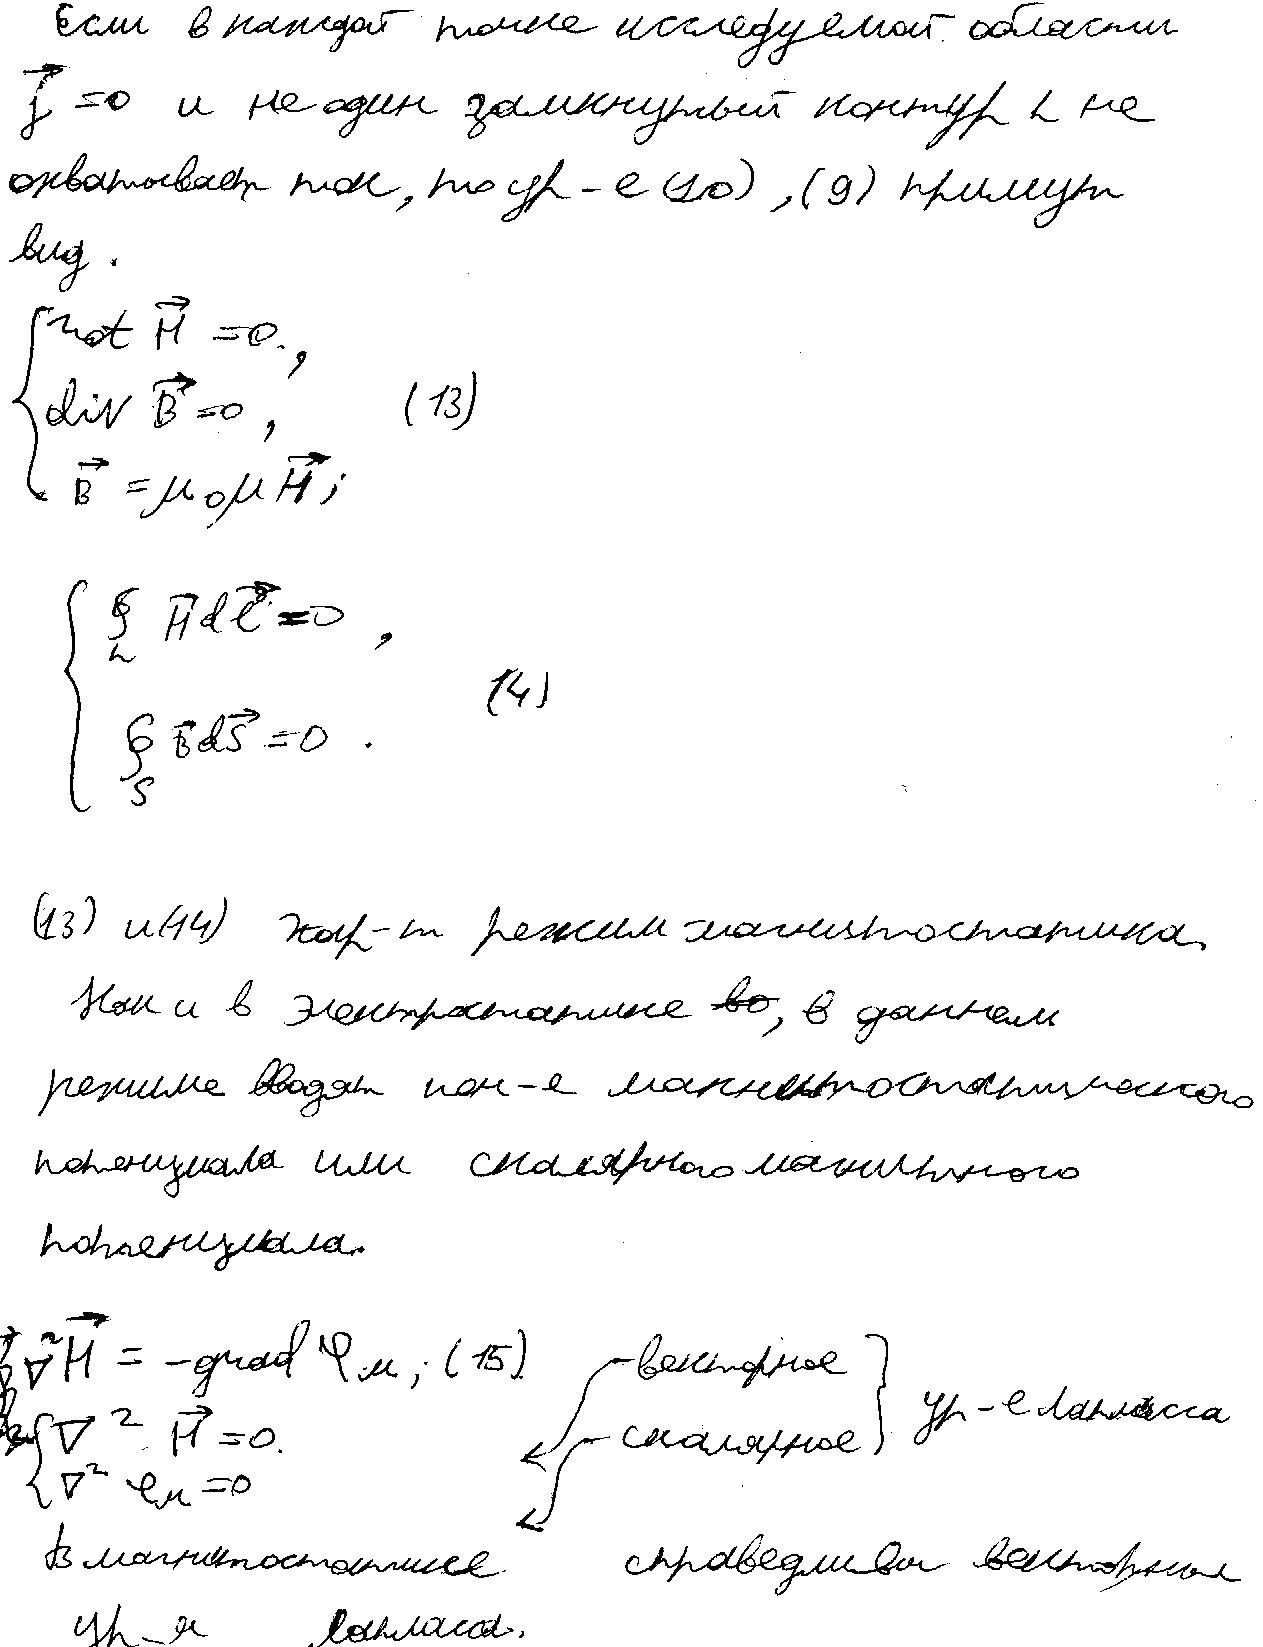 Если в каждой точке исследуемой области
j⃗ =0 и не один замкнутый контур L не
охватывает ток, то ур-е (10), (9) примут
вид.
rot H⃗ =0.,
div B⃗ =0, (13)
B⃗ = μ₀μH⃗;
∮_L H⃗dl⃗=0,
(14)
∮_S B⃗dS⃗=0.
(13) и (14) хар-т режим магнитостатика.
Как и в электростатике, в данном
режиме вводят пон-е магнитостатического
потенциала или скалярного магнитного
потенциала.
∇²H⃗ = -grad φм; (15) векторное
ур-е Лапласса
∇² H⃗=0. скалярное
∇² φм=0
В магнитостатике справедливы векторные
ур-я Лапласа.